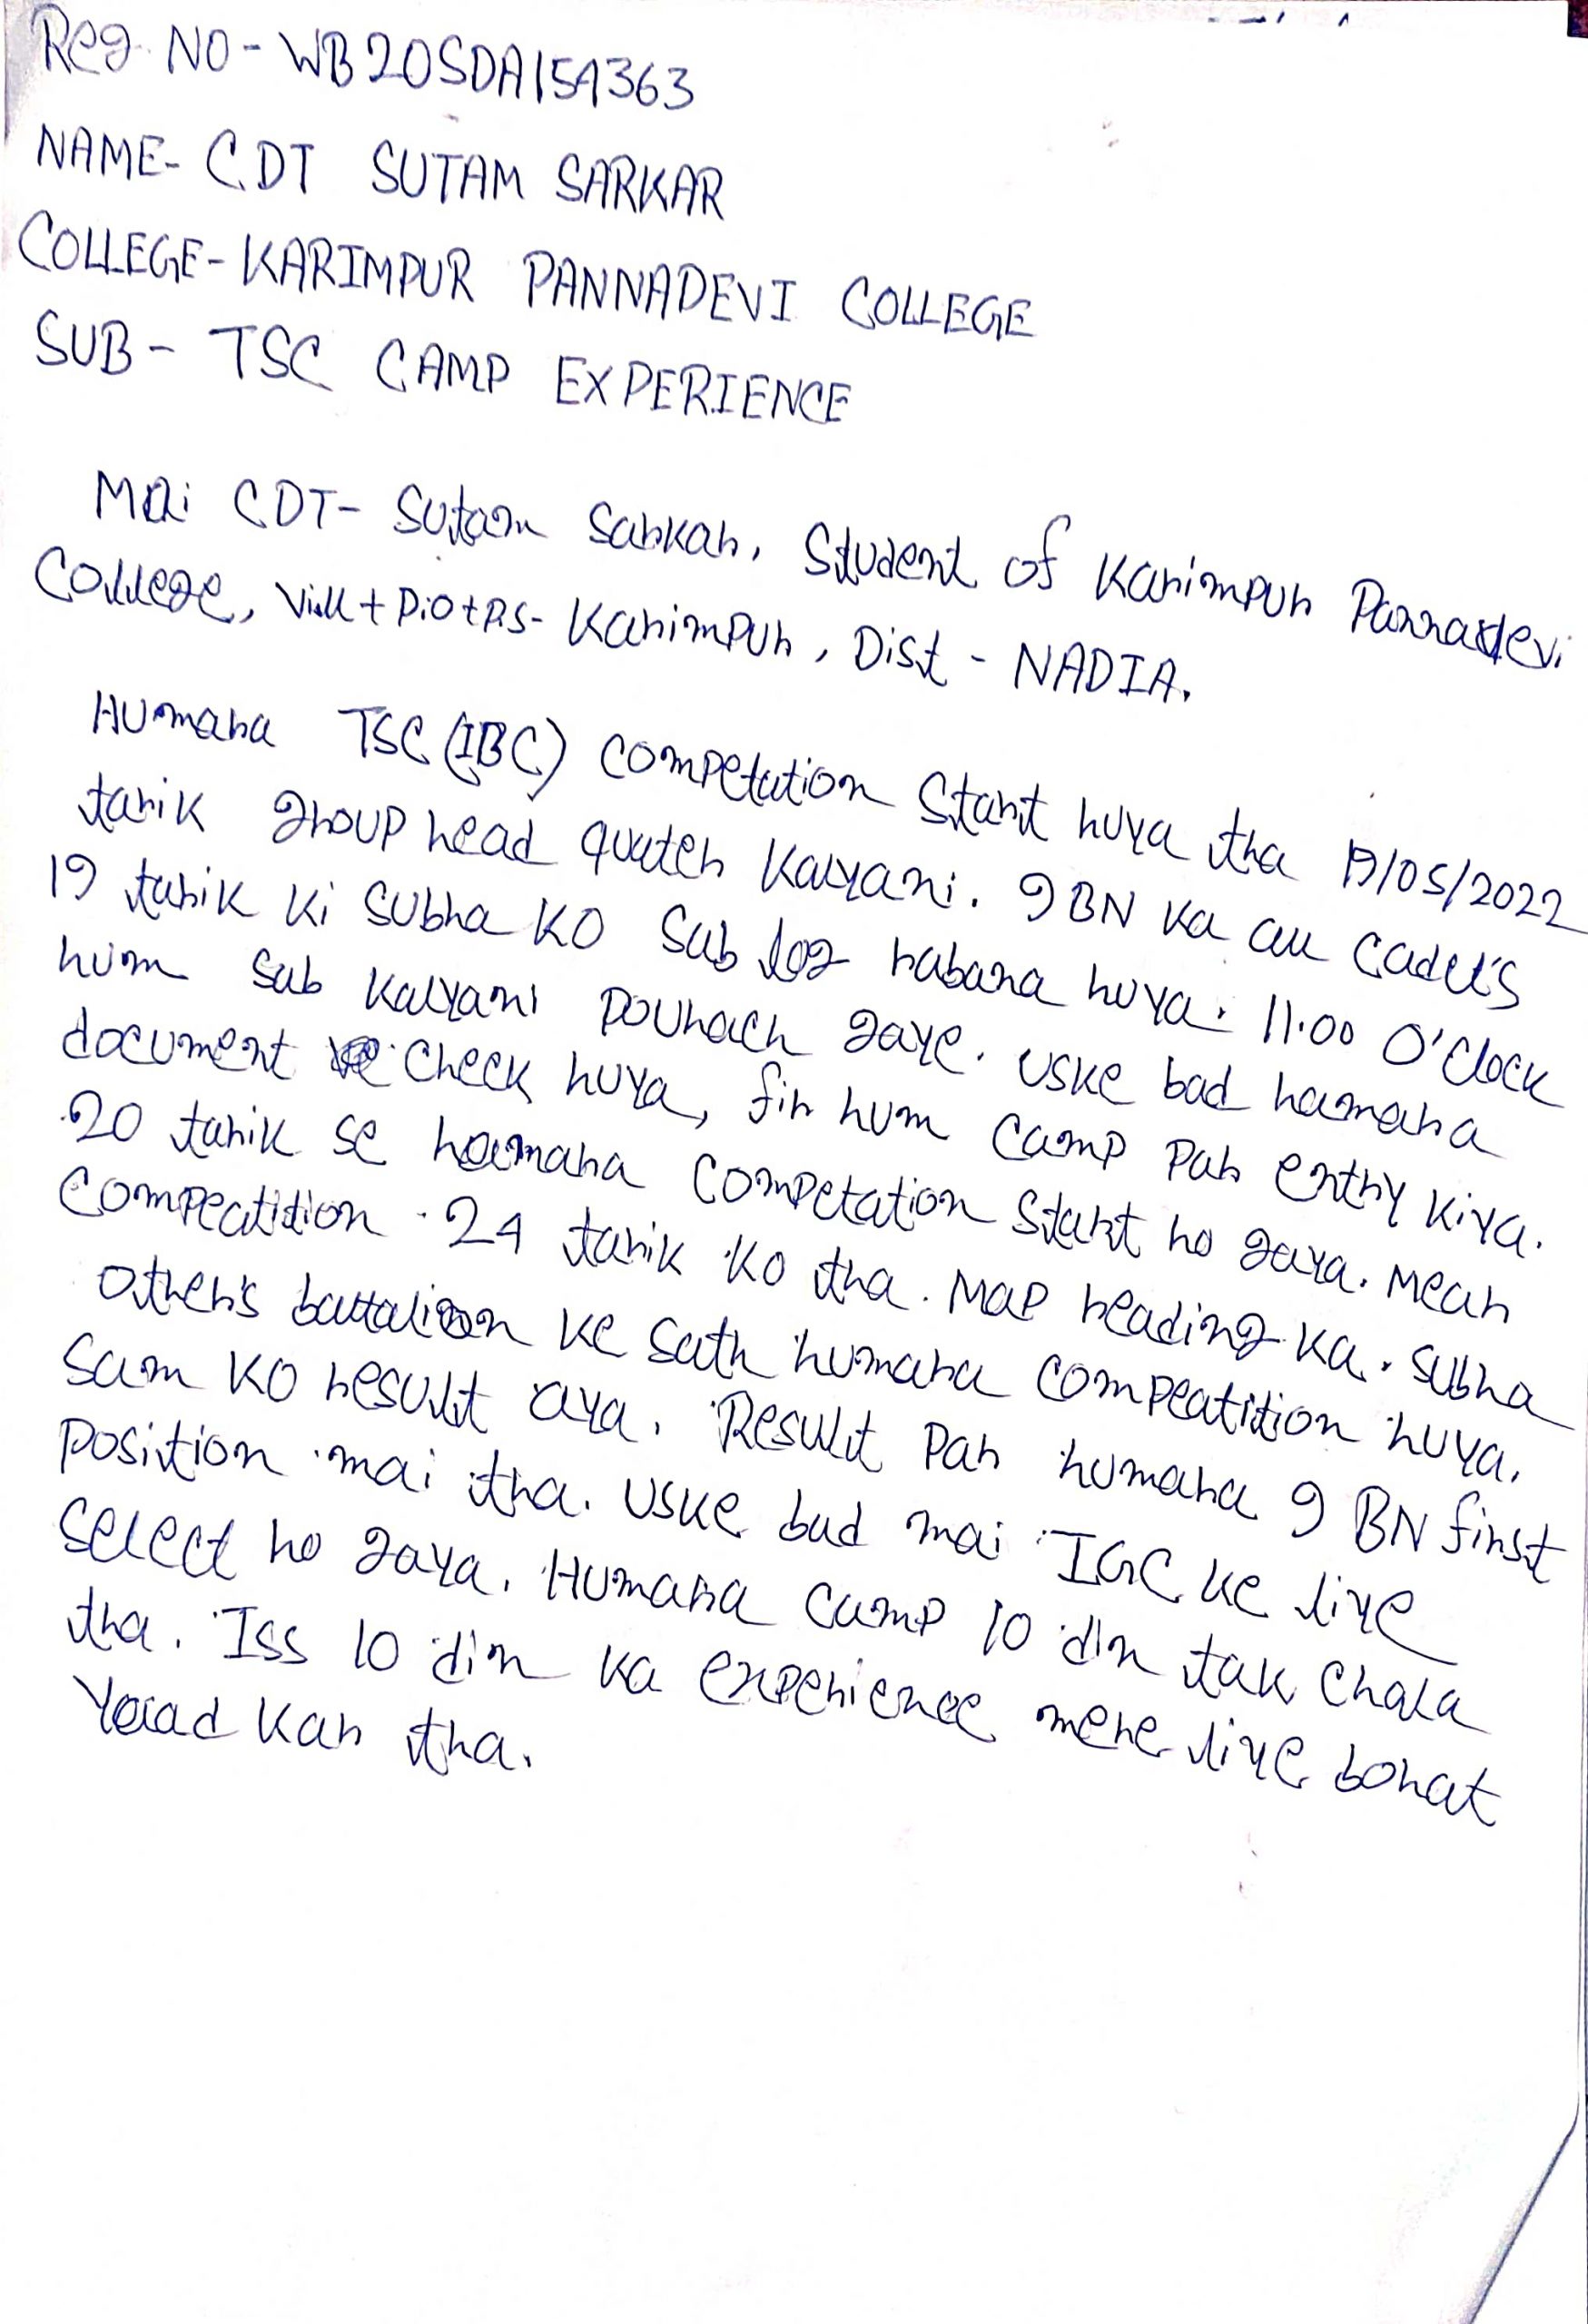 Reg. NO - WB20SDA154363
NAME- CDT SUTAM SARKAR
COLLEGE- KARIMPUR PANNADEVI COLLEGE
SUB - TSC CAMP EXPERIENCE
Mai CDT- Sutam Sarkar, Student of Karimpur Pannadevi
College, Vill+P.O+P.S- Karimpur, Dist - NADIA.
Humara TSC (IBC) Competation Start huya tha 19/05/2022
tarik group head quater Kalyani. 9 BN ka all Cadet's
19 tarik ki subha KO Sab log rabana huya. 11.00 O'Clock
hum sab Kalyani pouhach gaye. Uske bad hamara
document check huya, fir hum camp par entry kiya.
20 tarik se hamara competation start ho gaya. Mear
Compeatition 24 tarik ko tha. Map reading ka. Subha
Other's battalion ke sath humara compeatition huya.
Sam KO result aya. Result par humara 9 BN first
position mai tha. Uske bad mai IGC ke liye
Select ho gaya. Humara camp 10 din tak chala
tha. Iss 10 din ka experience mere liye bohat
Yaad kar tha.